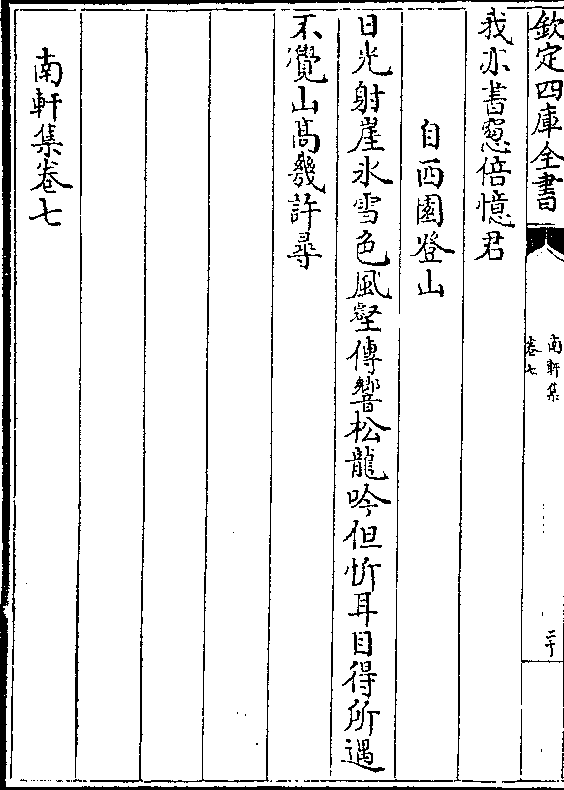 欽定四庫全書
南軒集
卷七
二十
我亦書窻倍憶君
自西園登山
日光射崖氷雪色風壑傳響松龍吟但忻耳目得所遇
不覺山髙幾許尋
南軒集卷七